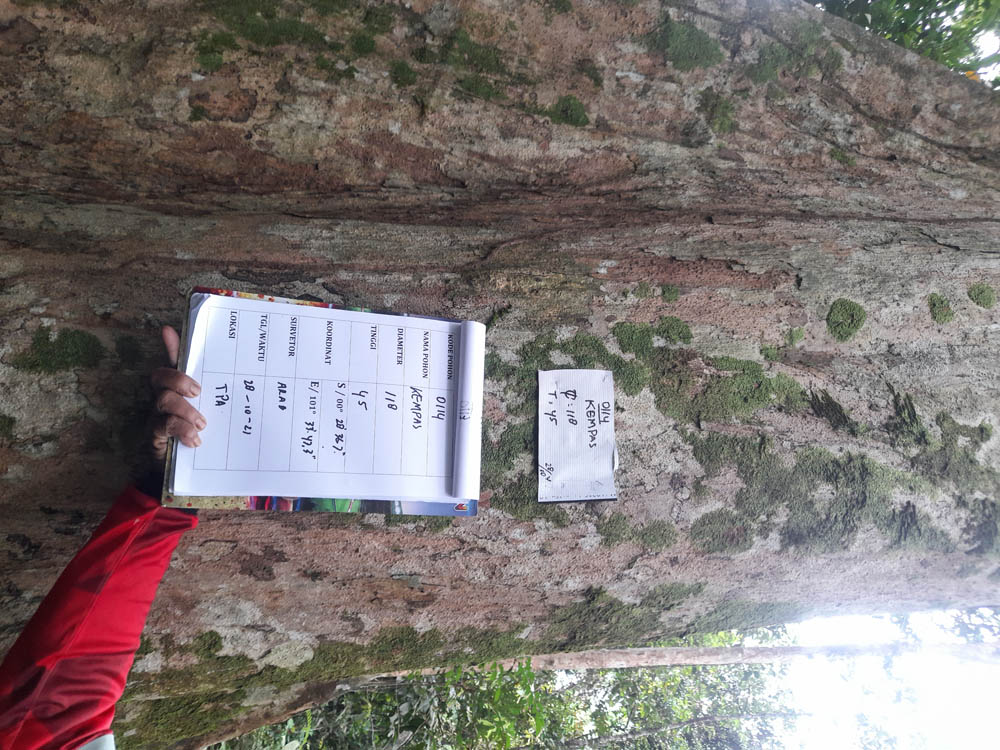 0114
KEMPAS
T : 45
28/10
KODE POHON 0114
NAMA POHON KEMPAS
DIAMETER 118
TINGGI 45
KOORDINAT
S / 00° 28' 36.7"
E/ 101° 33' 47,3"
SURVETOR ARAD
TGL/WAKTU 28-10-21
LOKASI TPA